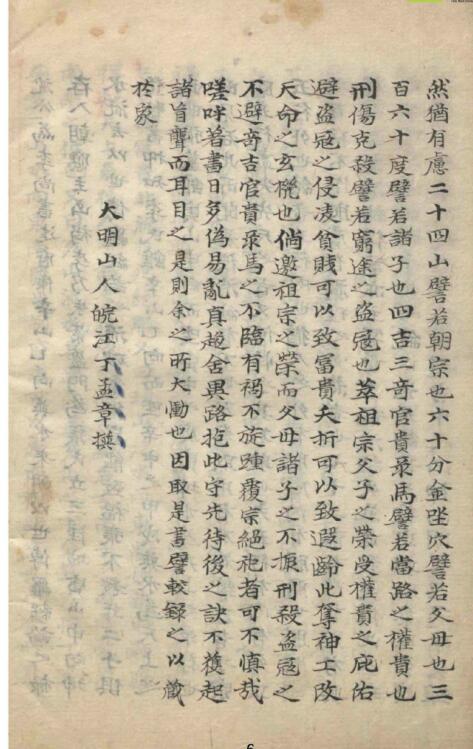 然猶有慮二十四山譬若朝宗也六十分金坐穴譬若父母也三
百六十度譬若諸子也四吉三竒官貴录馬譬若當路之權貴也
刑傷克殺譬若窮途之盜寇也萃祖宗父子之榮受權貴之庇佑
避盜寇之侵凌貧賤可以致富貴夭折可以致遐齡此奪神工改
天命之玄機也倘邀祖宗之榮而父母諸子之不振刑殺盜寇之
不避竒吉官貴录馬之不臨有禍不旋踵覆宗絕祀者可不慎哉
嗟吁著書日多偽易亂真趨舍異路抱此守先待後之訣不獲起
諸盲聾而耳目之是則余之所大慟也因取是書譬較録之以藏
扵家
大明山人皖江丁孟章撰
6